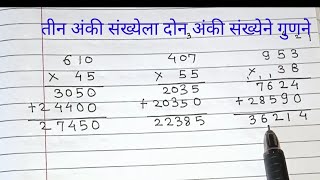 तीन अंकी संख्येला दोन अंकी संख्येने गुणने
610 407 953
x 45 x 55 x 38
3050 2035 7624
+24400 +20350 +28590
27450 22385 36214